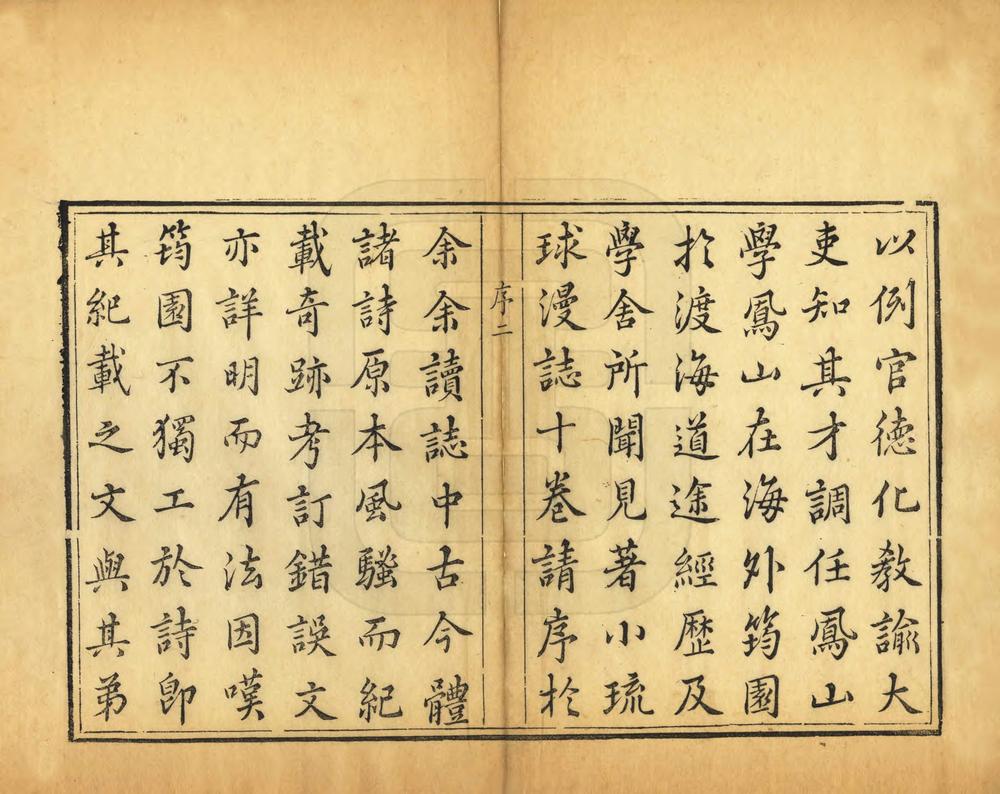 以例官德化教諭大
吏知其才調任鳳山
學鳳山在海外筠園
於渡海道途經歷及
學舍所聞見著小琉
球漫誌十卷請序於
序二
余余讀誌中古今體
諸詩原本風騷而紀
載奇跡考訂錯誤文
亦詳明而有法因嘆
筠園不獨工於詩即
其紀載之文與其弟